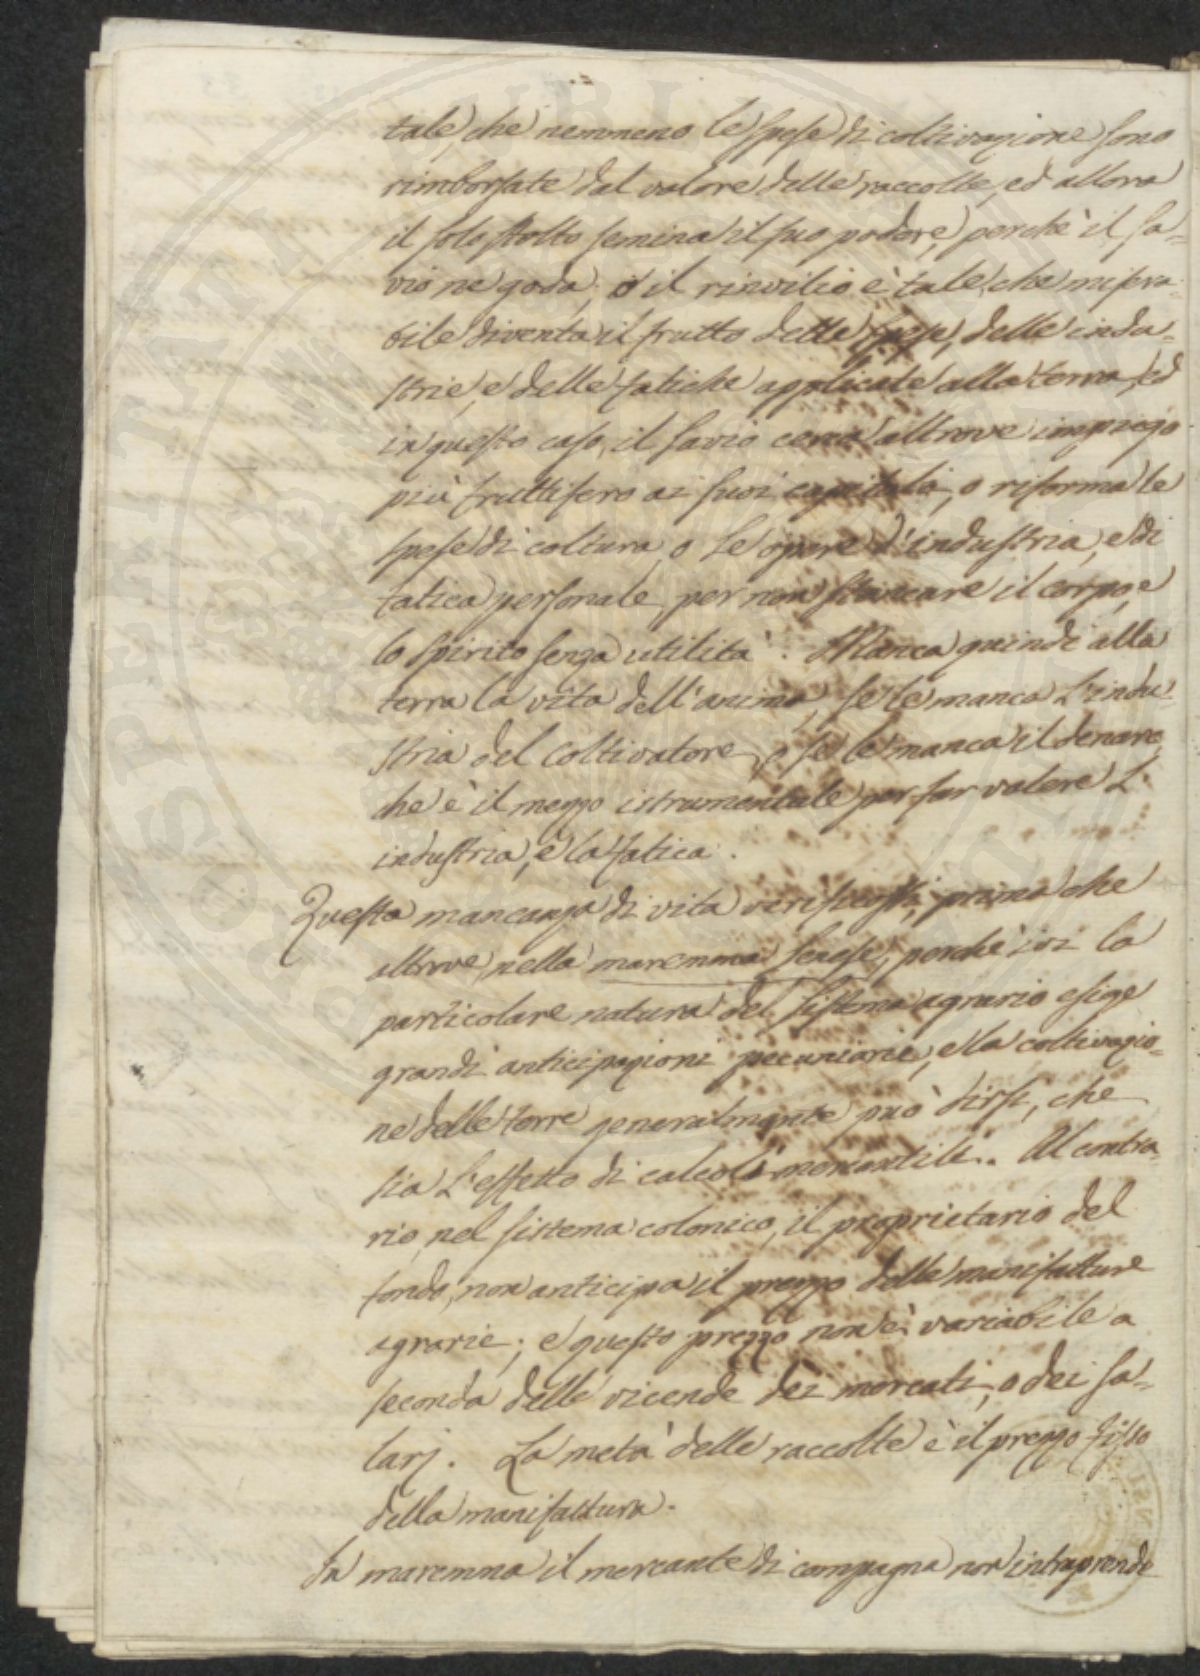 tale, che nemmeno le spese di coltivazione sono
rimborsate dal valore delle raccolte, ed allora
il solo stolto semina il suo podere, perchè il sa=
vio ne goda; o il rinvilio è tale, che misera=
bile diventa il frutto delle spese, delle indu=
strie, e delle fatiche applicate alla terra, ed
in questo caso, il savio cerca altrove impiego
più fruttifero ai suoi capitali, o riforma le
spese di coltura, o le opere d'industria, e di
fatica personale, per non stancare il corpo, e
lo spirito senza utilità. Manca quindi alla
terra la vita dell'anima, se le manca l'indu=
stria del coltivatore, o se le manca il denaro,
che è il mezzo istrumentale per far valere l'
industria, e la fatica.
Questa mancanza di vita prima che
altrove nella maremma senese, perchè ivi la
particolare natura del sistema agrario esige
grandi anticipazioni pecuniarie, e la coltivazio=
ne delle terre generalmente può dirsi, che
sia l'effetto di calcoli mercantili. Al contra=
rio, nel sistema colonico, il proprietario del
fondo, non anticipa il prezzo delle manifatture
agrarie; e questo prezzo non è variabile a
seconda delle vicende dei mercati, o dei sa=
larj. La metà delle raccolte è il prezzo fisso
della manifattura.
In maremma il mercante di campagna non intraprende
PROSPERITATI PUBLICAE